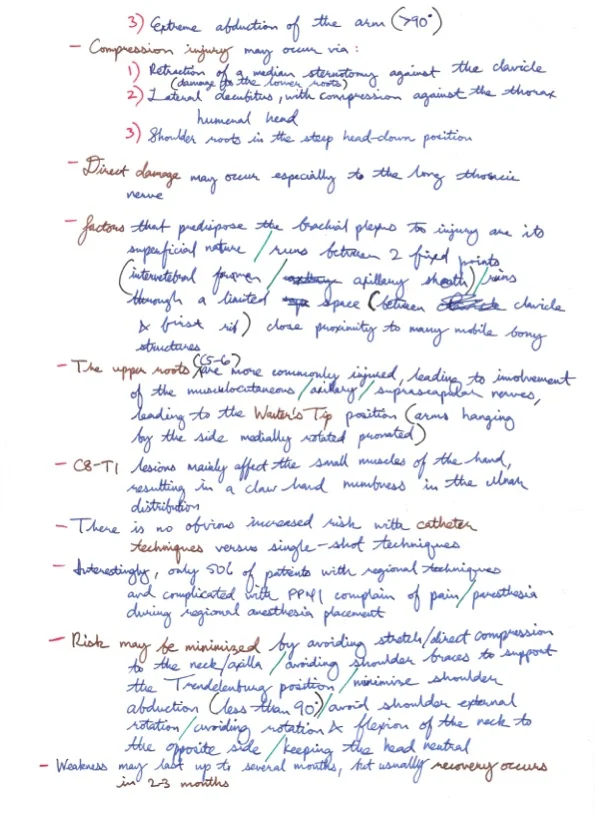 3) Extreme abduction of the arm (>90°)
- Compression injury may occur via:
1) Retraction of a median sternotomy against the clavicle
(damage to the lower roots)
2) Lateral decubitus, with compression against the thorax
humeral head
3) Shoulder roots in the steep head-down position
- Direct damage may occur especially to the long thoracic
nerve
- Factors that predispose the brachial plexus to injury are its
superficial nature / runs between 2 fixed points
(intervertebral foramen / axillary sheath) / runs
through a limited space (between clavicle
& first rib) close proximity to many mobile bony
structures
- The upper roots (C5-6) are more commonly injured, leading to involvement
of the musculocutaneous / axillary / suprascapular nerves,
leading to the Waiter's Tip position (arms hanging
by the side medially rotated pronated)
- C8-T1 lesions mainly affect the small muscles of the hand,
resulting in a claw hand numbness in the ulnar
distribution
- There is no obvious increased risk with catheter
techniques versus single-shot techniques
- Interestingly, only 50% of patients with regional techniques
and complicated with PPNI complain of pain / paresthesia
during regional anesthesia placement
- Risk may be minimized by avoiding stretch/direct compression
to the neck/axilla / avoiding shoulder braces to support
the Trendelenburg position / minimise shoulder
abduction (less than 90°) / avoid shoulder external
rotation / avoiding rotation & flexion of the neck to
the opposite side / keeping the head neutral
- Weakness may last up to several months, but usually recovery occurs
in 2-3 months